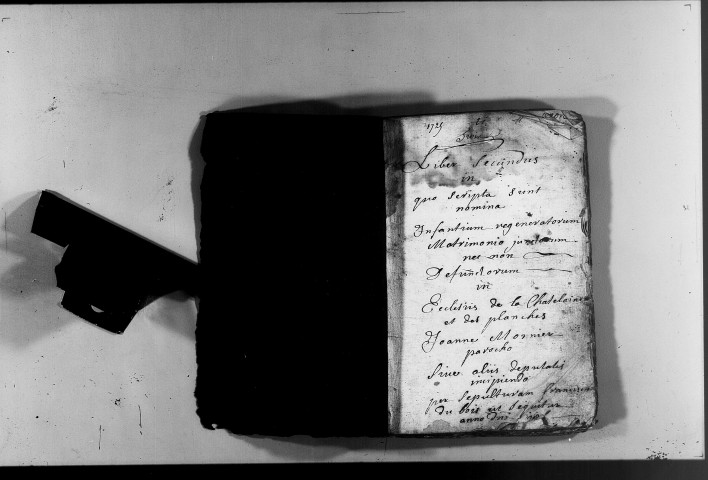 1725
Liber Secundus
in
quo scripta sunt
nomina
Infantium regeneratorum
Matrimonio junctorum
nec non
Defunctorum
in
Ecclesiis de la Chatelaine
et des planches
Joanne Mornier
parocho
Sive aliis deputatis
incipiendo
per sepulturam
du bois ut sequitur
anno Dni